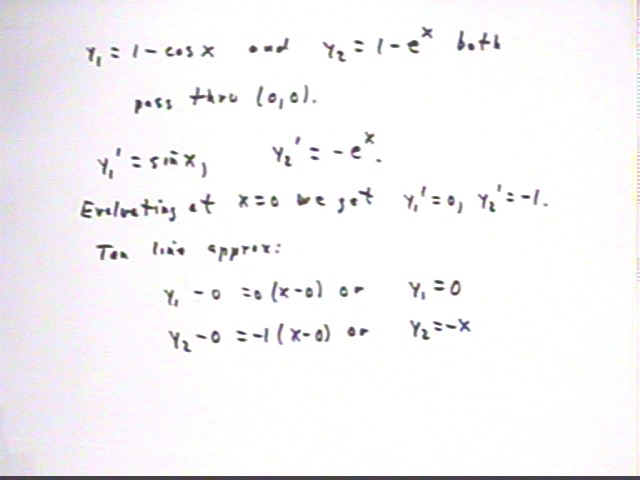 y₁ = 1 - cos x and y₂ = 1 - eˣ both
pass thru (0,0).
y₁' = sin x, y₂' = - eˣ.
Evaluating at x=0 we get y₁' = 0, y₂' = -1.
Tan line approx:
y₁ - 0 = 0 (x-0) or y₁ = 0
y₂ - 0 = -1 (x-0) or y₂ = -x